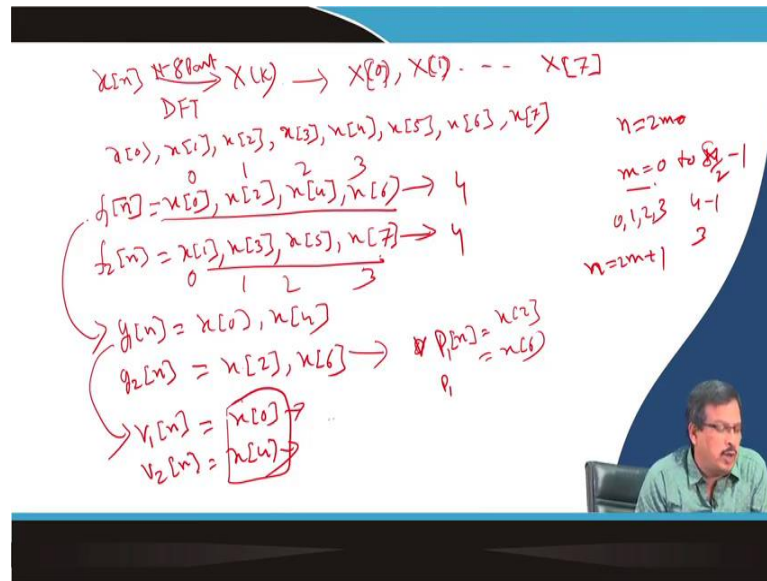 x[n] N-8 Point DFT → X(k) → X[0], X(1) --- X[7]
x(0), x[1], x[2], x[3], x[4], x[5], x[6], x[7]
0 1 2 3
f1[n] = x[0], x[2], x[4], x[6] → 4
f2[n] = x[1], x[3], x[5], x[7] → 4
0 1 2 3
g1[n] = x(0), x[4]
g2[n] = x[2], x[6] →
v1[n] = x[0] →
v2[n] = x[4] →
P1[n] = x[2]
= x(6)
P1
n=2m
m=0 to 8/2 -1
0,1,2,3 4-1
3
n=2m+1